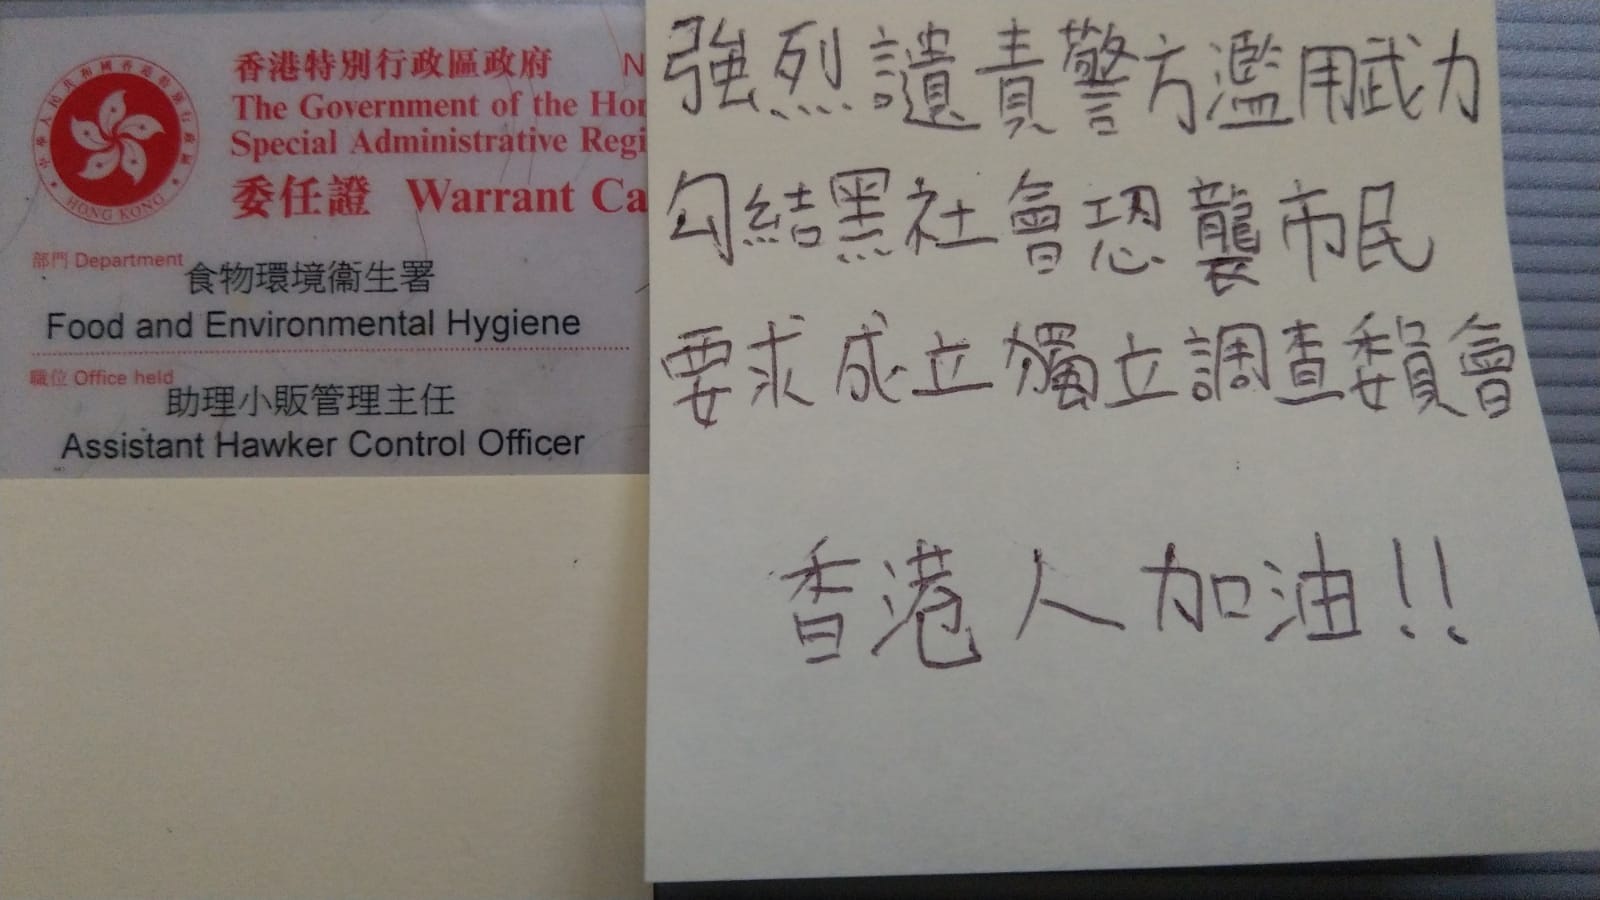 香港特別行政區政府 N
The Government of the Hon
Special Administrative Regi
委任證 Warrant Ca
HONG KONG
部門 Department
食物環境衞生署
Food and Environmental Hygiene
職位 Office held
助理小販管理主任
Assistant Hawker Control Officer
強烈譴責警方濫用武力
勾結黑社會恐襲市民
要求成立獨立調查委員會
香港人加油!!